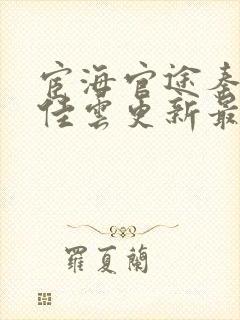 宦海官途秦
佳雲更新最
羅夏蘭